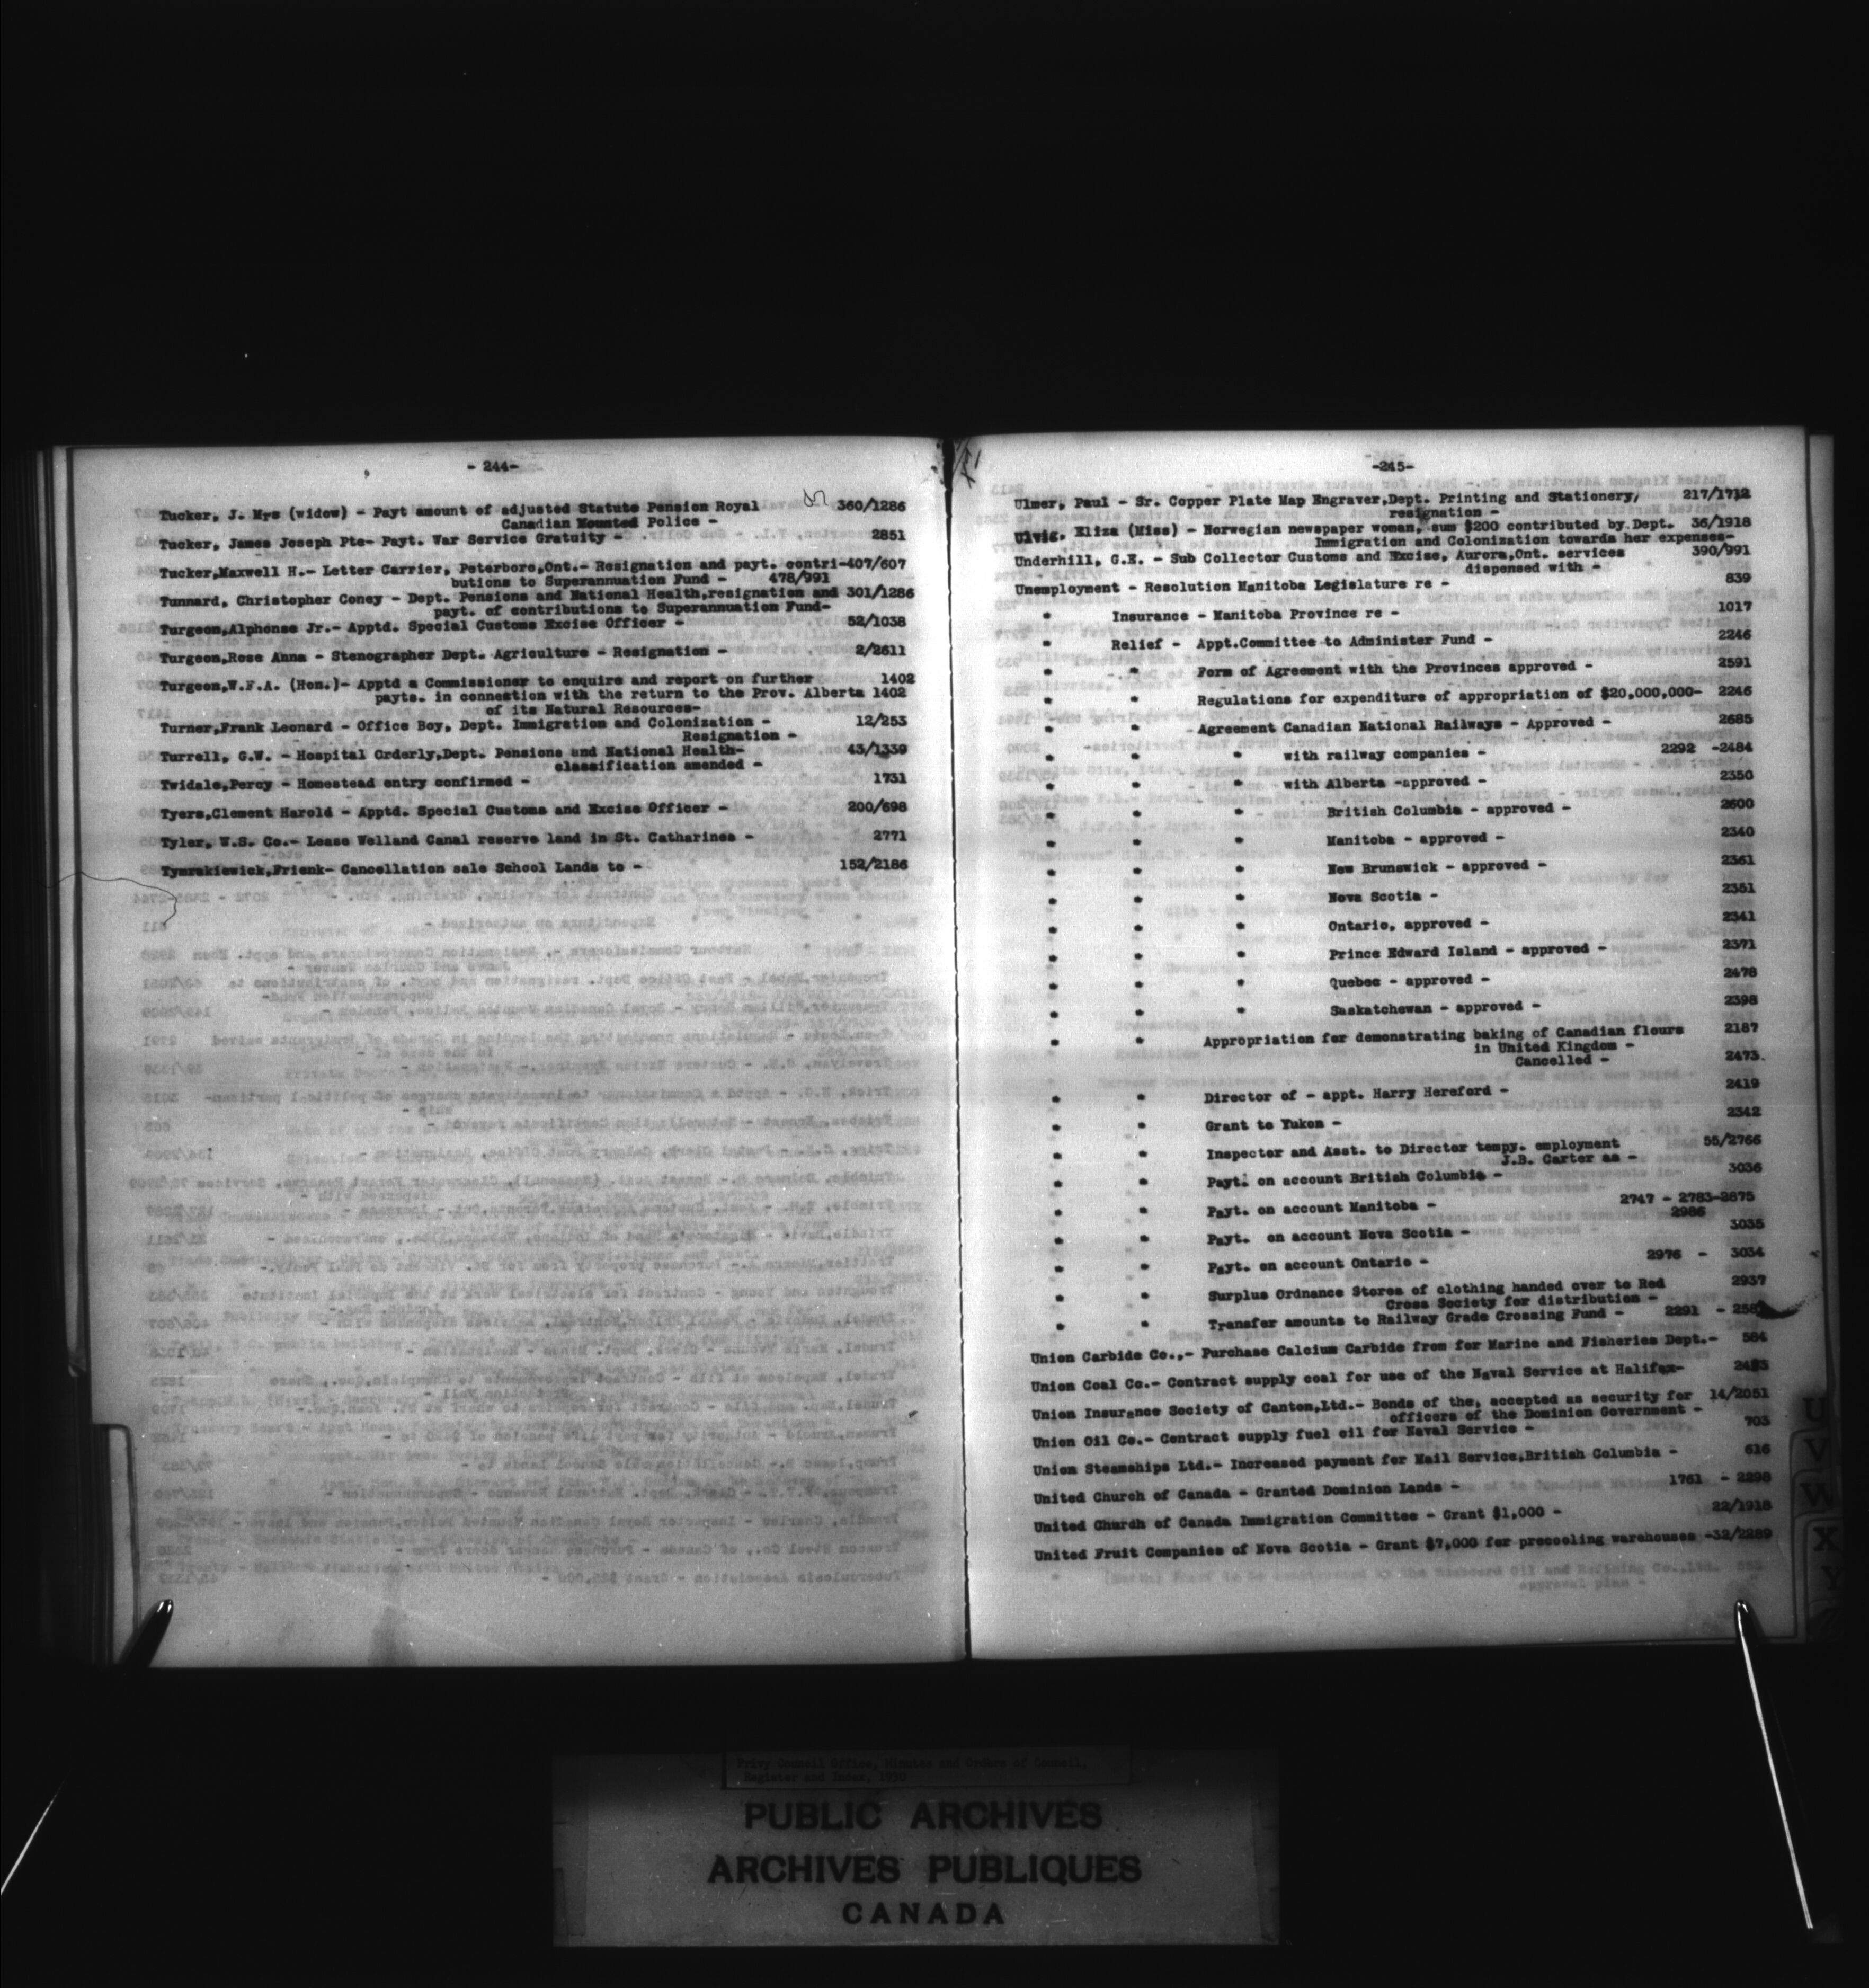 - 244-
Tucker, J. Mrs (widow) - Payt amount of adjusted Statute Pension Royal 360/1286
Canadian Mounted Police -
Tucker, James Joseph Pte- Payt. War Service Gratuity - 2851
Tucker,Maxwell H.- Letter Carrier, Peterboro,Ont.- Resignation and payt. contri-407/607
butions to Superannuation Fund - 478/991
Tunnard, Christopher Coney - Dept. Pensions and National Health,resignation and 301/1286
payt. of contributions to Superannuation Fund-
Turgeon,Alphonse Jr.- Apptd. Special Customs Excise Officer - 52/1038
Turgeon,Rose Anna - Stenographer Dept. Agriculture - Resignation - 2/2611
Turgeon,W.F.A. (Hon.)- Apptd a Commissioner to enquire and report on further 1402
payts. in connection with the return to the Prov. Alberta 1402
of its Natural Resources-
Turner,Frank Leonard - Office Boy, Dept. Immigration and Colonization - 12/253
Resignation -
Turrell, G.W. - Hospital Orderly,Dept. Pensions and National Health- 43/1339
classification amended -
Twidale,Percy - Homestead entry confirmed - 1731
Tyers,Clement Harold - Apptd. Special Customs and Excise Officer - 200/698
Tyler, W.S. Co.- Lease Welland Canal reserve land in St. Catharines - 2771
Tymrakiewick,Frienk- Cancellation sale School Lands to - 152/2186
-245-
Ulmer, Paul - Sr. Copper Plate Map Engraver,Dept. Printing and Stationery, 217/1712
resignation -
Ulvig, Eliza (Miss) - Norwegian newspaper woman, sum $200 contributed by Dept. 36/1918
Immigration and Colonization towards her expenses-
Underhill, G.E. - Sub Collector Customs and Excise, Aurora,Ont. services 390/991
dispensed with -
Unemployment - Resolution Manitoba Legislature re - 839
" Insurance - Manitoba Province re - 1017
" Relief - Appt.Committee to Administer Fund - 2246
" " Form of Agreement with the Provinces approved - 2591
" " Regulations for expenditure of appropriation of $20,000,000- 2246
" " Agreement Canadian National Railways - Approved - 2685
" " " with railway companies - 2292 -2484
" " " with Alberta -approved - 2350
" " " British Columbia - approved - 2600
" " " Manitoba - approved - 2340
" " " New Brunswick - approved - 2361
" " " Nova Scotia - 2351
" " " Ontario, approved - 2341
" " " Prince Edward Island - approved - 2371
" " " Quebec - approved - 2478
" " " Saskatchewan - approved - 2398
" " Appropriation for demonstrating baking of Canadian flours 2187
in United Kingdom -
Cancelled - 2473.
" " Director of - appt. Harry Hereford - 2419
" " Grant to Yukon - 2342
" " Inspector and Asst. to Director tempy. employment 55/2766
J.B. Carter as -
" " Payt. on account British Columbia - 3036
" " Payt. on account Manitoba - 2747 - 2783-2875
2986
" " Payt. on account Nova Scotia - 3035
" " Payt. on account Ontario - 2976 - 3034
" " Surplus Ordnance Stores of clothing handed over to Red 2937
Cross Society for distribution -
" " Transfer amounts to Railway Grade Crossing Fund - 2291 -
Union Carbide Co.,- Purchase Calcium Carbide from for Marine and Fisheries Dept.- 584
Union Coal Co.- Contract supply coal for use of the Naval Service at Halifax-
Union Insurance Society of Canton,Ltd.- Bonds of the, accepted as security for 14/2051
officers of the Dominion Government -
Union Oil Co.- Contract supply fuel oil for Naval Service - 703
Union Steamships Ltd.- Increased payment for Mail Service,British Columbia - 616
United Church of Canada - Granted Dominion Lands - 1761 - 2298
United Church of Canada Immigration Committee - Grant $1,000 - 22/1918
United Fruit Companies of Nova Scotia - Grant $7,000 for precooling warehouses -32/2289
U
V
W
X
Y
Privy Council Office, Minutes and Orders of Council,
Register and Index, 1930
PUBLIC ARCHIVES
ARCHIVES PUBLIQUES
CANADA